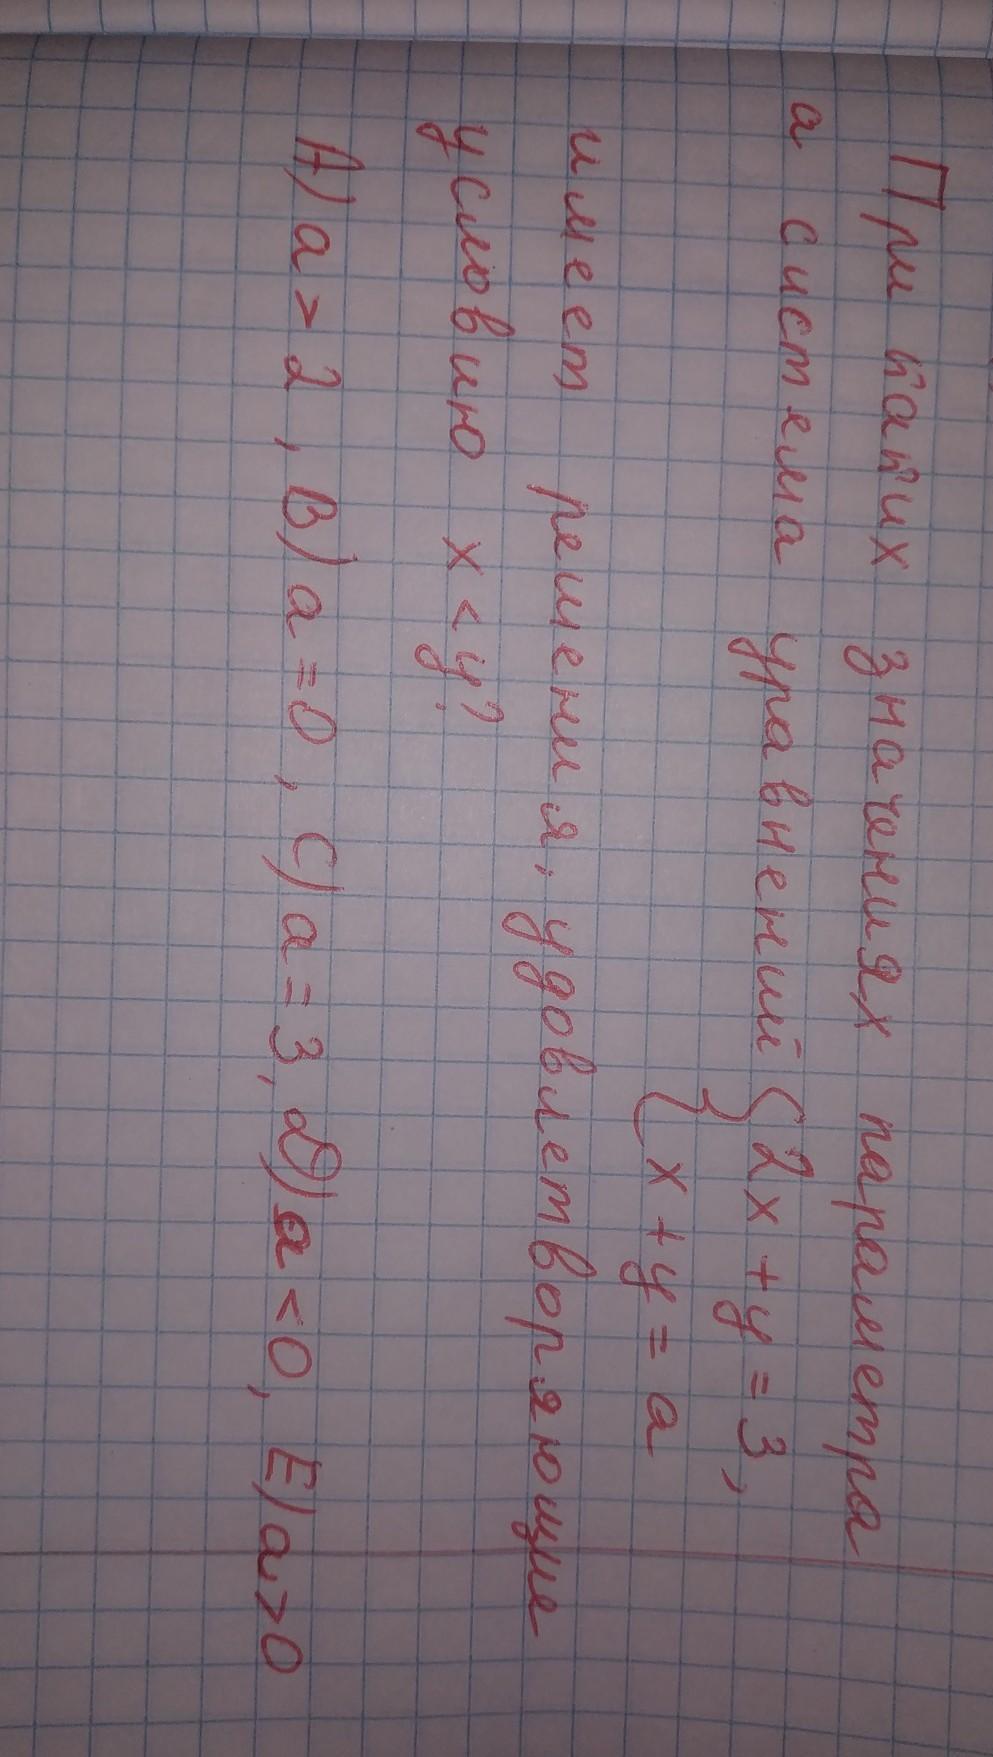 При каких значениях параметра
а система уравнений { 2x + y = 3,
{ x + y = a
имеет решения, удовлетворяющие
условию x < y?
A) a > 2, B) a = 0, C) a = 3, D) a < 0, E) a > 0